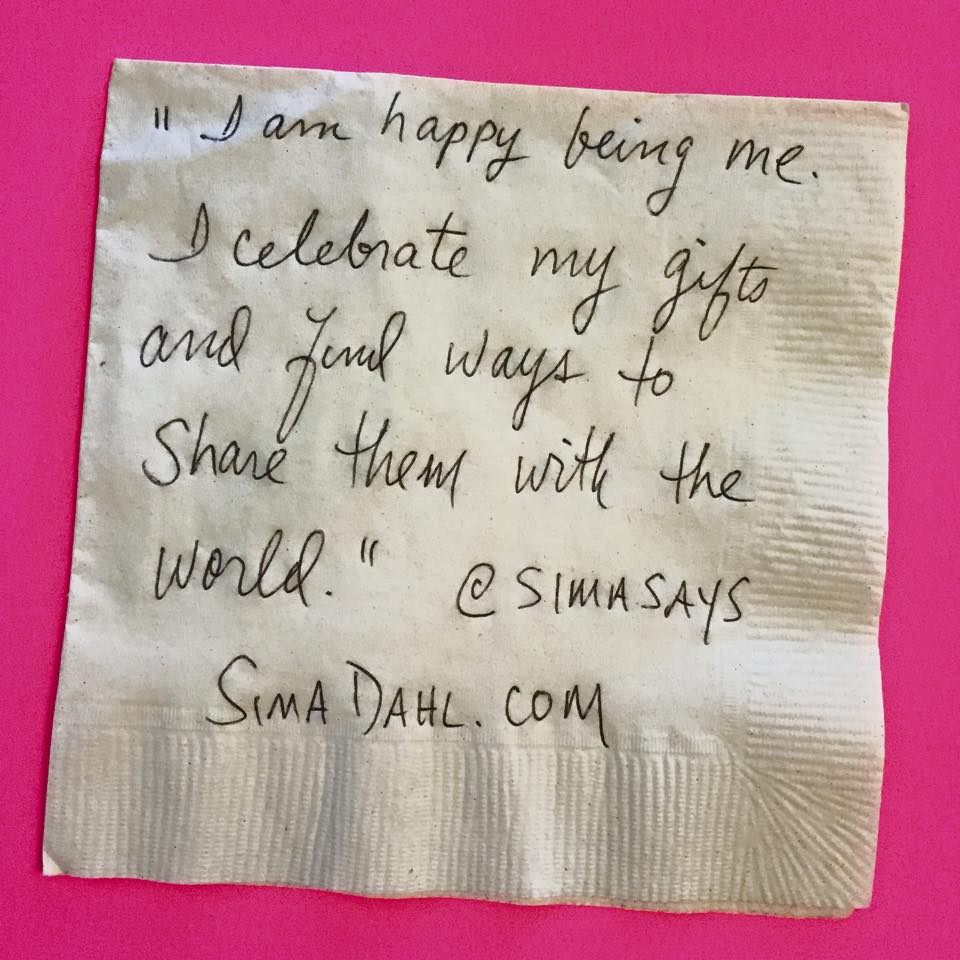 " I am happy being me.
I celebrate my gifts
and find ways to
Share them with the
world." @SIMASAYS
SIMA DAHL.COM